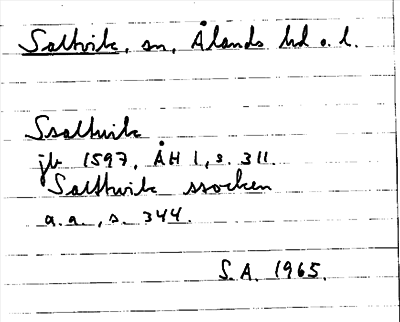 Saltvik, sn, Ålands hd o. l.
Ssaltwik
jb 1597, ÅH 1, s. 311.
Saltthwik ssocken
a.a., s. 344.
S.A. 1965.